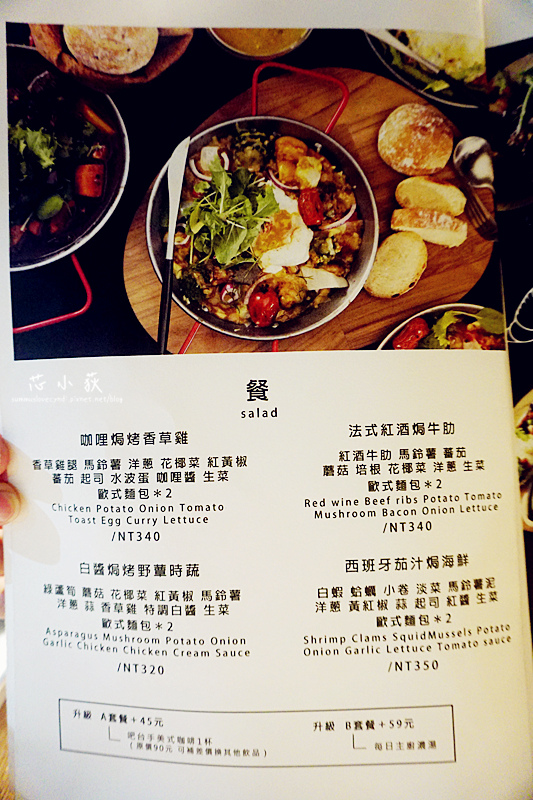 芯小荻
餐
salad
咖哩焗烤香草雞
香草雞腿 馬鈴薯 洋蔥 花椰菜 紅黃椒
蕃茄 起司 水波蛋 咖哩醬 生菜
歐式麵包*2
Chicken Potato Onion Tomato
Toast Egg Curry Lettuce
/NT340
法式紅酒焗牛肋
紅酒牛肋 馬鈴薯 蕃茄
蘑菇 培根 花椰菜 洋蔥 生菜
歐式麵包*2
Red wine Beef ribs Potato Tomato
Mushroom Bacon Onion Lettuce
/NT340
白醬焗烤野蕈時蔬
綠蘆筍 蘑菇 花椰菜 紅黃椒 馬鈴薯
洋蔥 蒜 香草雞 特調白醬 生菜
歐式麵包*2
Asparagus Mushroom Potato Onion
Garlic Chicken Chicken Cream Sauce
/NT320
西班牙茄汁焗海鮮
白蝦 蛤蠣 小卷 淡菜 馬鈴薯泥
洋蔥 黃紅椒 蒜 起司 紅醬 生菜
歐式麵包*2
Shrimp Clams SquidMussels Potato
Onion Garlic Lettuce Tomato sauce
/NT350
升級 A套餐+45元
吧台手美式咖啡1杯
(原價90元 可補差價換其他飲品)
升級 B套餐+59元
每日主廚濃湯